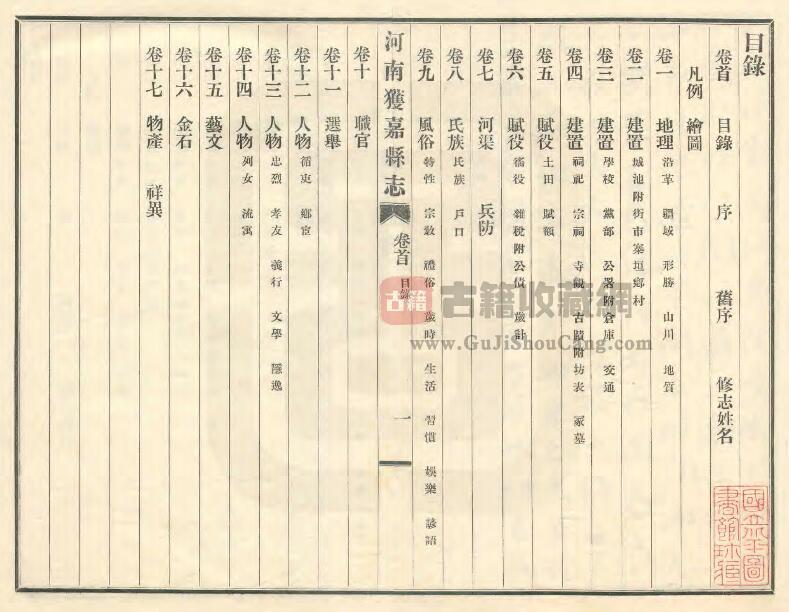 目錄
卷首 目錄 序 舊序 修志姓名
凡例 繪圖
卷一 地理 沿革 疆域 形勝 山川 地質
卷二 建置 城池附街市寨垣鄉村
卷三 建置 學校 黨部 公署附倉庫 交通
卷四 建置 祠祀 宗祠 寺觀 古蹟附坊表 冢墓
卷五 賦役 土田 賦額
卷六 賦役 徭役 雜稅附公債 歲計
卷七 河渠 兵防
卷八 氏族 氏族 戶口
卷九 風俗 特性 宗教 禮俗 歲時 生活 習慣 娛樂 諺語
河南獲嘉縣志 卷首 目錄 一
卷十 職官
卷十一 選舉
卷十二 人物 循吏 鄉宦
卷十三 人物 忠烈 孝友 義行 文學 隱逸
卷十四 人物 列女 流寓
卷十五 藝文
卷十六 金石
卷十七 物產 祥異
古籍 古籍收藏網
www.GuJiShouCang.com